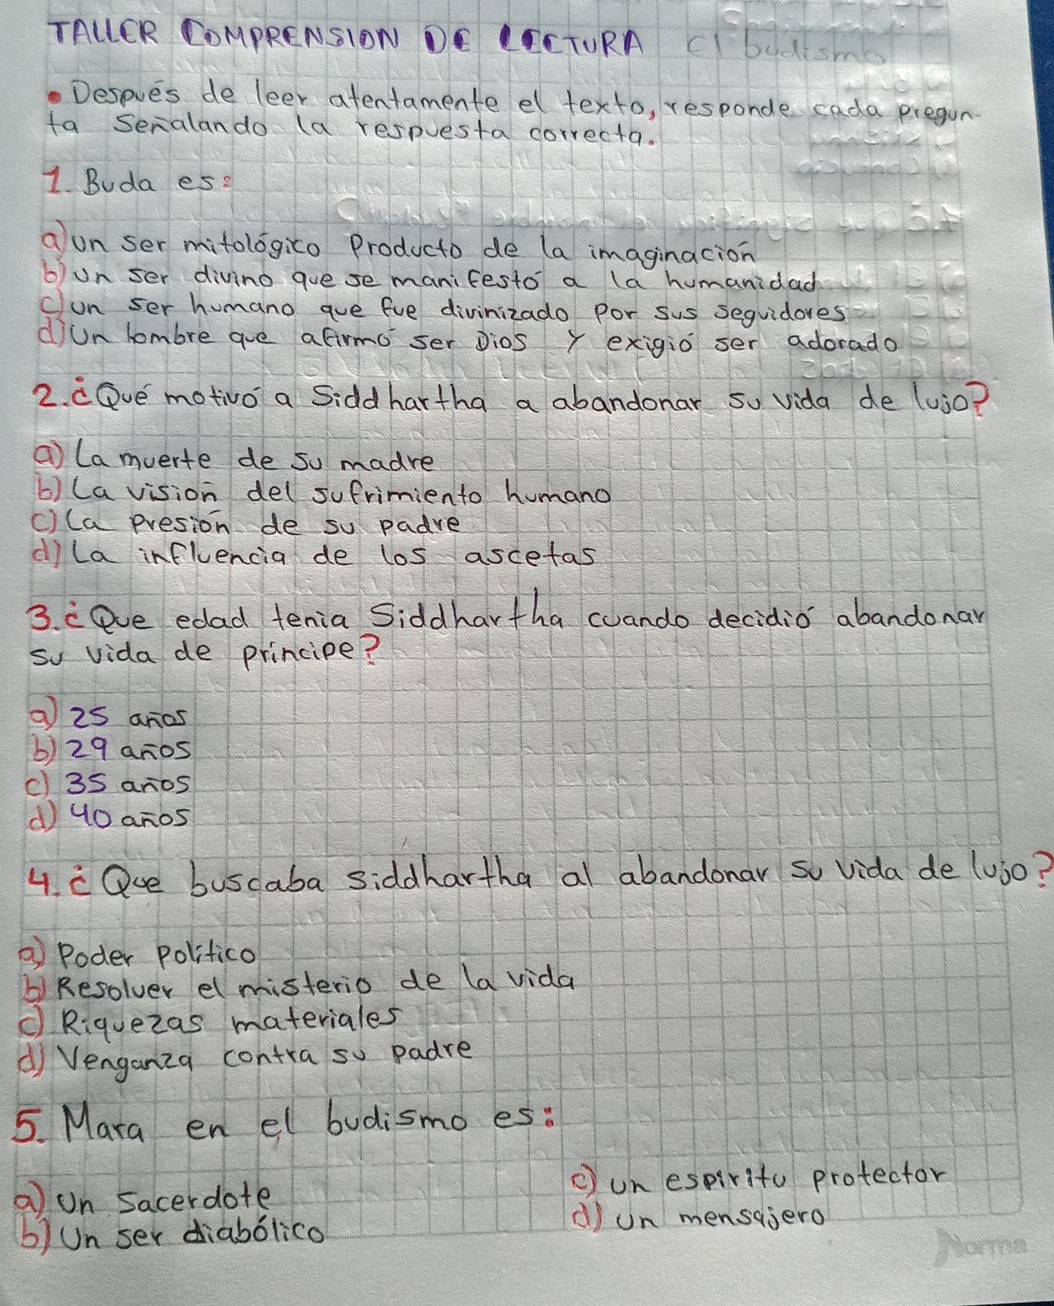 TALLER COMPRENSION DE LECTURA
• Después de leer atentamente el texto, responde cada pregun-
ta señalando la respuesta correcta.
1. Buda es:
a) un ser mitológico Producto de la imaginación
b) un ser divino que se manifestó a la humanidad
c) un ser humano que fue divinizado por sus seguidores
d) Un hombre que afirmó ser Dios y exigió ser adorado
2. ¿Qué motivó a Siddhartha a abandonar su vida de lujo?
a) La muerte de su madre
b) La visión del sufrimiento humano
c) La presión de su padre
d) La influencia de los ascetas
3. ¿Que edad tenia Siddhartha cuando decidió abandonar
su vida de principe?
a) 25 años
b) 29 años
c) 35 años
d) 40 años
4. ¿Que buscaba siddhartha al abandonar su vida de lujo?
a) Poder politico
b) Resolver el misterio de la vida
c) Riquezas materiales
d) Venganza contra su padre
5. Mara en el budismo es:
a) Un Sacerdote
b) Un ser diabólico
c) un espiritu protector
d) un mensajero
Norma